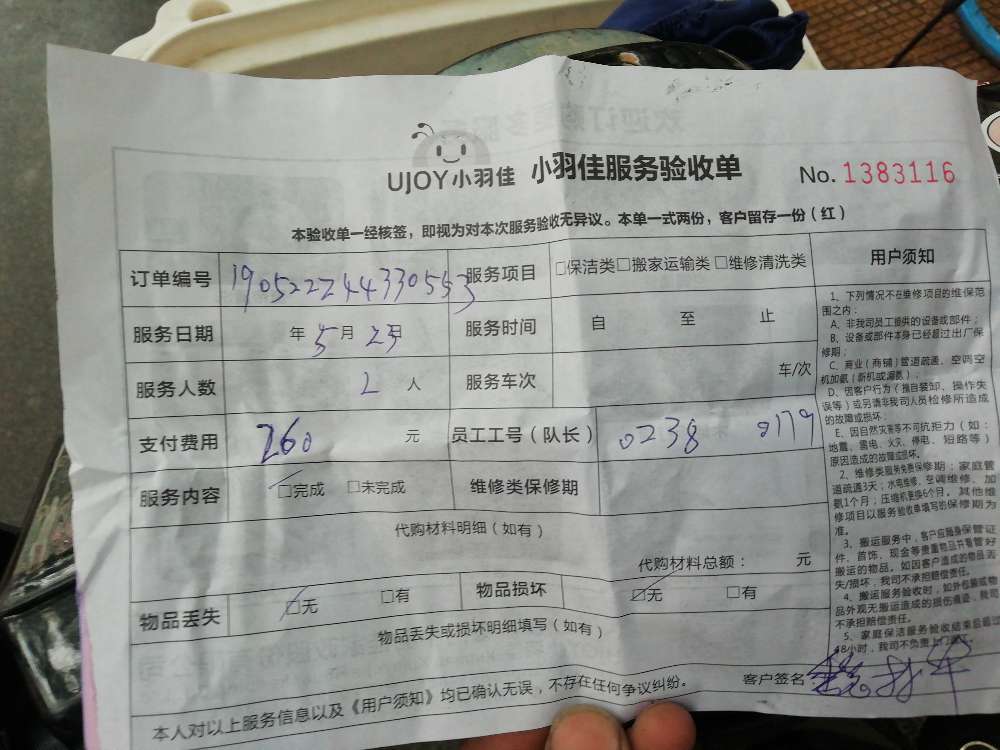 UJOY小羽佳 小羽佳服务验收单 No. 1383116
本验收单一经核签，即视为对本次服务验收无异议。本单一式两份，客户留存一份（红）
订单编号 190522244330553 服务项目 □保洁类□搬家运输类□维修清洗类
服务日期 年 5 月 23 日 服务时间 自 至 止
服务人数 2 人 服务车次 车/次
支付费用 260 元 员工工号（队长） 0238 0179
服务内容 □完成 □未完成 维修类保修期
代购材料明细（如有）
代购材料总额： 元
物品丢失 □无 □有 物品损坏 □无 □有
物品丢失或损坏明细填写（如有）
本人对以上服务信息以及《用户须知》均已确认无误，不存在任何争议纠纷。 客户签名
用户须知
1、下列情况不在维修项目的维保范
围之内：
A、非我司员工提供的设备或部件；
B、设备或部件本身已经超过出厂保
修期；
C、商业（商铺）管道疏通、空调空
机加氨（新机或漏氨）；
D、因客户行为（擅自装卸、操作失
误等）或另请非我司人员检修所造成
的故障或损坏；
E、因自然灾害等不可抗拒力（如：
地震、雷电、火灾、停电、短路等）
原因造成的故障或损坏。
2、维修类服务免费保修期：家庭管
道疏通3天；水电维修、空调维修、加
氨1个月；压缩机更换6个月。其他维
修项目以服务验收单填写的保修期为
准。
3、搬运服务中，客户应随身保管证
件、首饰、现金等贵重物品并看管好
搬运的物品。如因客户造成的物品丢
失/损坏，我司不承担赔偿责任。
4、搬运服务验收时，如外包装或物
品外观无搬运造成的损伤痕迹，我司
不承担赔偿责任。
5、家庭保洁服务验收结束后超过
48小时，我司不负责上门